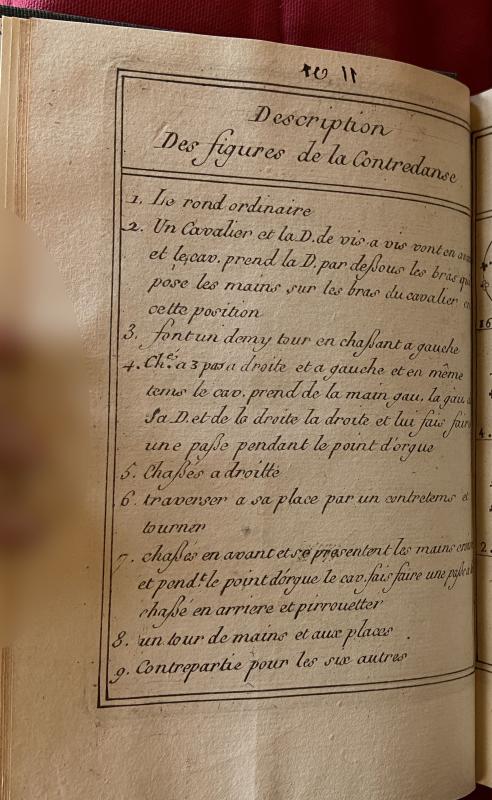 Description
Des figures de la Contredanse
1. Le rond ordinaire
2. Un Cavalier et la D. de vis a vis vont en
et le cav. prend la D. par deßous les bras
pose les mains sur les bras du cavalier
cette position
3. font un demy tour en chaßant a gauche
4. Ch.é a 3 pas a droite et a gauche et en même
tems le cav. prend de la main gau. la gau.
Sa D. et de la droite la droite et lui fais
une paße pendant le point d'orgue
5. Chaßés a droitte
6. traverser a sa place par un contretems et
tourner
7. chaßés en avant et se présentent les mains
et pend.t le point d'orgue le cav. fais faire une paße
chaßé en arriere et pirrouetter
8. un tour de mains et aux places .
9. Contrepartie pour les six autres